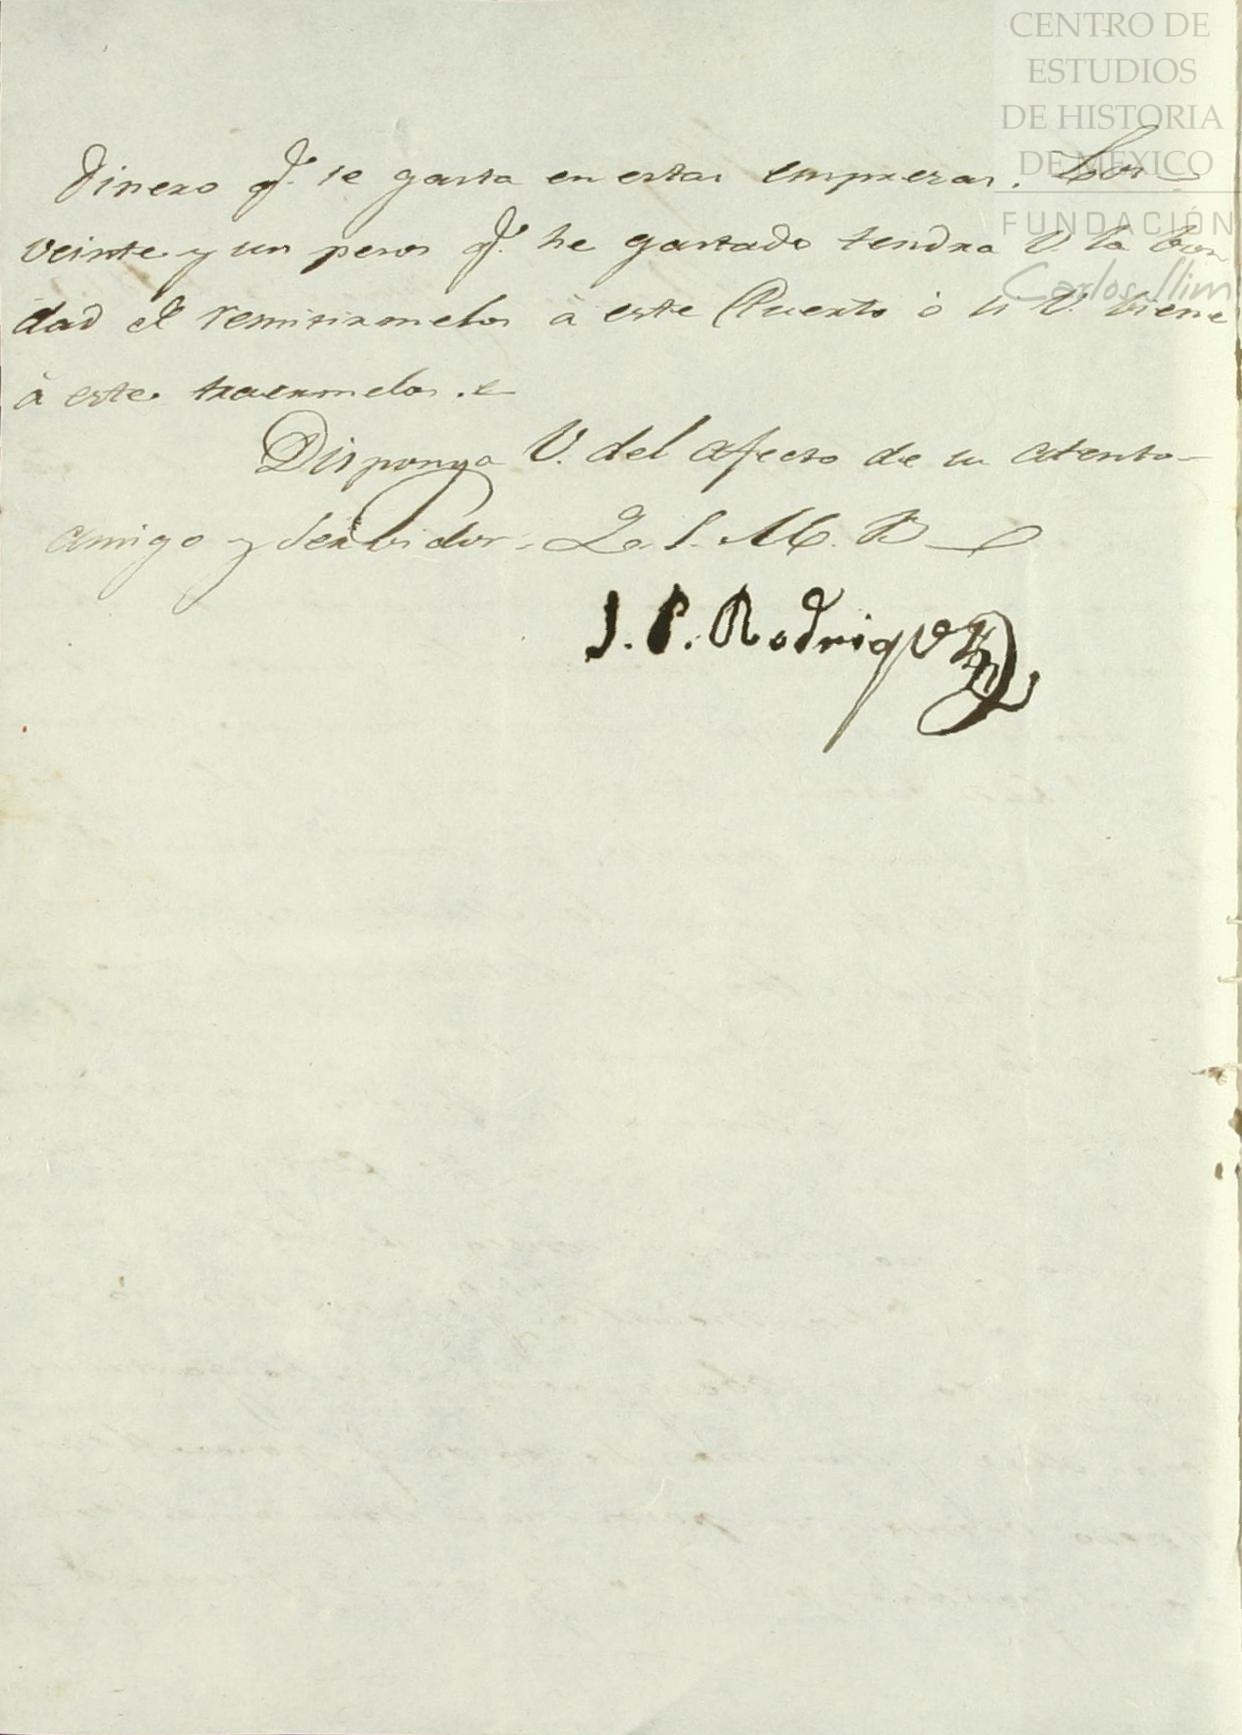 CENTRO DE
ESTUDIOS
DE HISTORIA
DE MÉXICO
FUNDACIÓN
Carlos Slim
dinero q.e se gasta en estas empresas. Los
veinte y un pesos q.e he gastado tendra V. la bon
dad de remitirmelos à este Puerto ò si V. viene
à este traermelos.
Disponga V. del afecto de su atento
amigo y servidor. Q. S. M. B.
J. P. Rodriguez